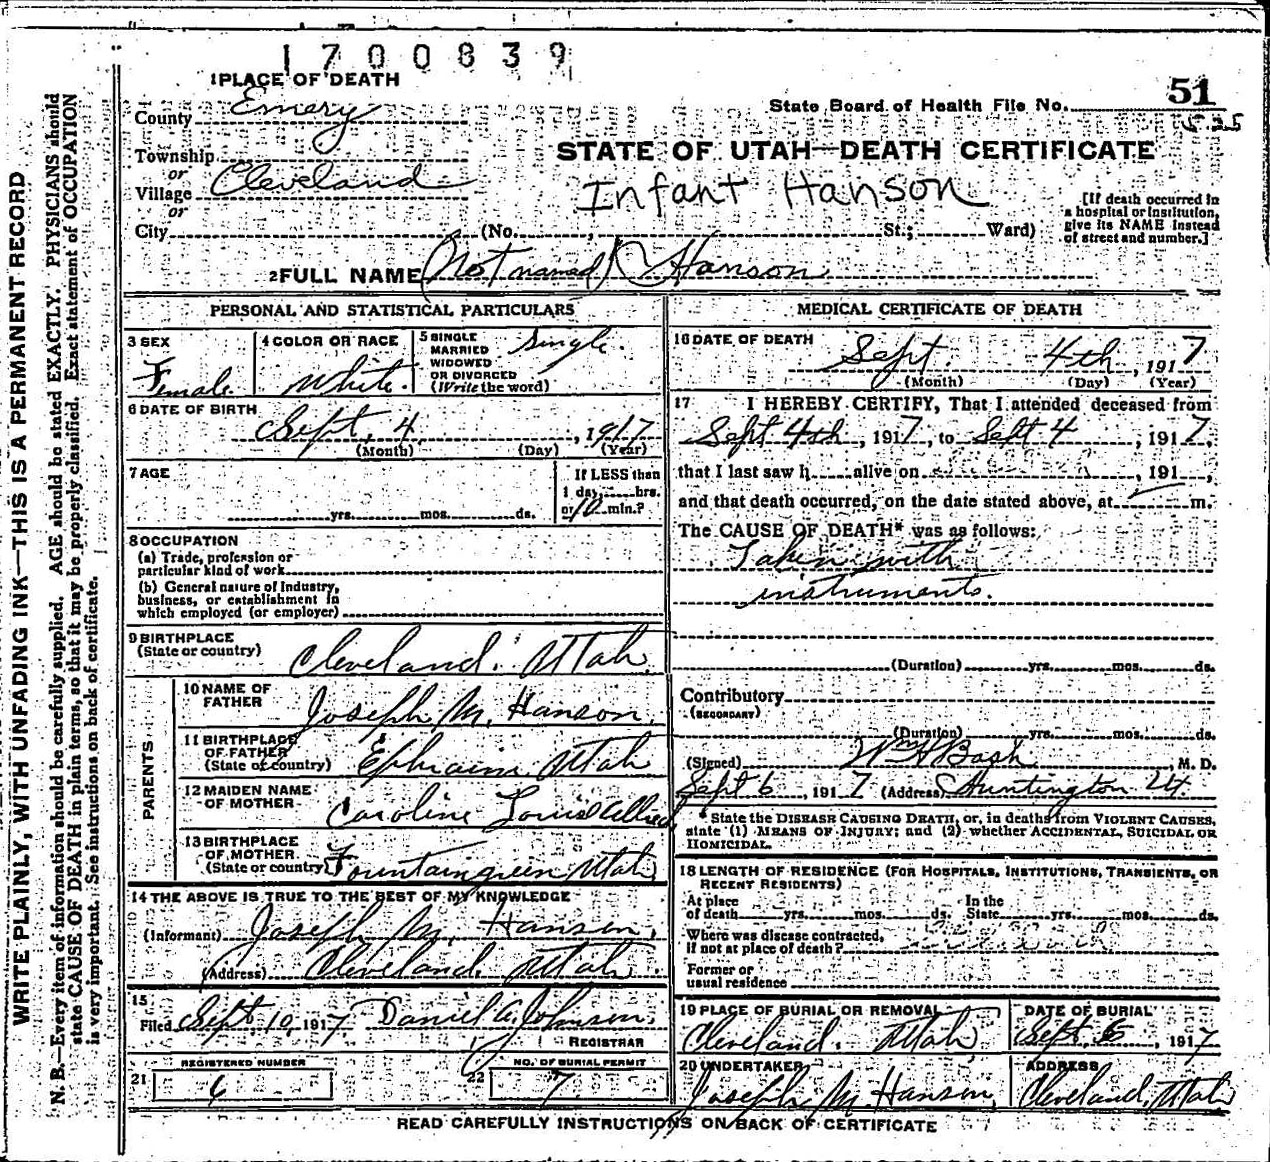 1700839
1 PLACE OF DEATH
County Emery
State Board of Health File No. 51
Township
or
Village Cleveland
or
City (No. , St.; Ward)
STATE OF UTAH—DEATH CERTIFICATE
Infant Hanson
[If death occurred in
a hospital or institution,
give its NAME instead
of street and number.]
2 FULL NAME (Not named) Hanson
PERSONAL AND STATISTICAL PARTICULARS
3 SEX
Female
4 COLOR OR RACE
White.
5 SINGLE
MARRIED
WIDOWED
OR DIVORCED
(Write the word)
Single.
6 DATE OF BIRTH
Sept. 4 , 1917
(Month) (Day) (Year)
7 AGE
yrs. mos. ds.
If LESS than
1 day, hrs.
or 10 min.?
8 OCCUPATION
(a) Trade, profession or
particular kind of work
(b) General nature of Industry,
business, or establishment in
which employed (or employer)
9 BIRTHPLACE
(State or country)
Cleveland. Utah
PARENTS
10 NAME OF
FATHER
Joseph M. Hanson.
11 BIRTHPLACE
OF FATHER
(State or country)
Ephraim Utah
12 MAIDEN NAME
OF MOTHER
Caroline Louise Allred
13 BIRTHPLACE
OF MOTHER
(State or country)
Fountaingreen Utah
14 THE ABOVE IS TRUE TO THE BEST OF MY KNOWLEDGE
(Informant) Joseph M. Hanson.
(Address) Cleveland. Utah.
15
Filed Sept. 10, 1917 Daniel A. Johnson.
REGISTRAR
REGISTERED NUMBER
21 6
NO. OF BURIAL PERMIT
22 7
MEDICAL CERTIFICATE OF DEATH
16 DATE OF DEATH
Sept. 4th , 1917
(Month) (Day) (Year)
17 I HEREBY CERTIFY, That I attended deceased from
Sept 4th , 1917, to Sept 4 , 1917,
that I last saw h alive on , 191 ,
and that death occurred, on the date stated above, at m.
The CAUSE OF DEATH* was as follows:
Taken with
instruments.
(Duration) yrs. mos. ds.
Contributory
(SECONDARY)
(Duration) yrs. mos. ds.
(Signed) Wm H Bash , M. D.
Sept 6 , 1917 (Address) Huntington Ut.
* State the DISEASE CAUSING DEATH, or, in deaths from VIOLENT CAUSES,
state (1) MEANS OF INJURY; and (2) whether ACCIDENTAL, SUICIDAL OR
HOMICIDAL.
18 LENGTH OF RESIDENCE (FOR HOSPITALS, INSTITUTIONS, TRANSIENTS, OR
RECENT RESIDENTS)
At place In the
of death yrs. mos. ds. State yrs. mos. ds.
Where was disease contracted,
if not at place of death?
Former or
usual residence
19 PLACE OF BURIAL OR REMOVAL
Cleveland. Utah
DATE OF BURIAL
Sept. 6 , 1917
20 UNDERTAKER
Joseph M Hanson,
ADDRESS
Cleveland, Utah
READ CAREFULLY INSTRUCTIONS ON BACK OF CERTIFICATE
WRITE PLAINLY, WITH UNFADING INK—THIS IS A PERMANENT RECORD
N. B.—Every item of information should be carefully supplied. AGE should be stated EXACTLY. PHYSICIANS should
state CAUSE OF DEATH in plain terms, so that it may be properly classified. Exact statement of OCCUPATION
is very important. See instructions on back of certificate.